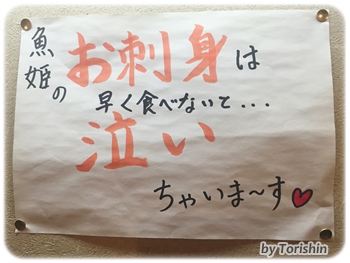 魚姫の
お刺身は
早く食べないと...
泣い
ちゃいま～す♥
by Torishin